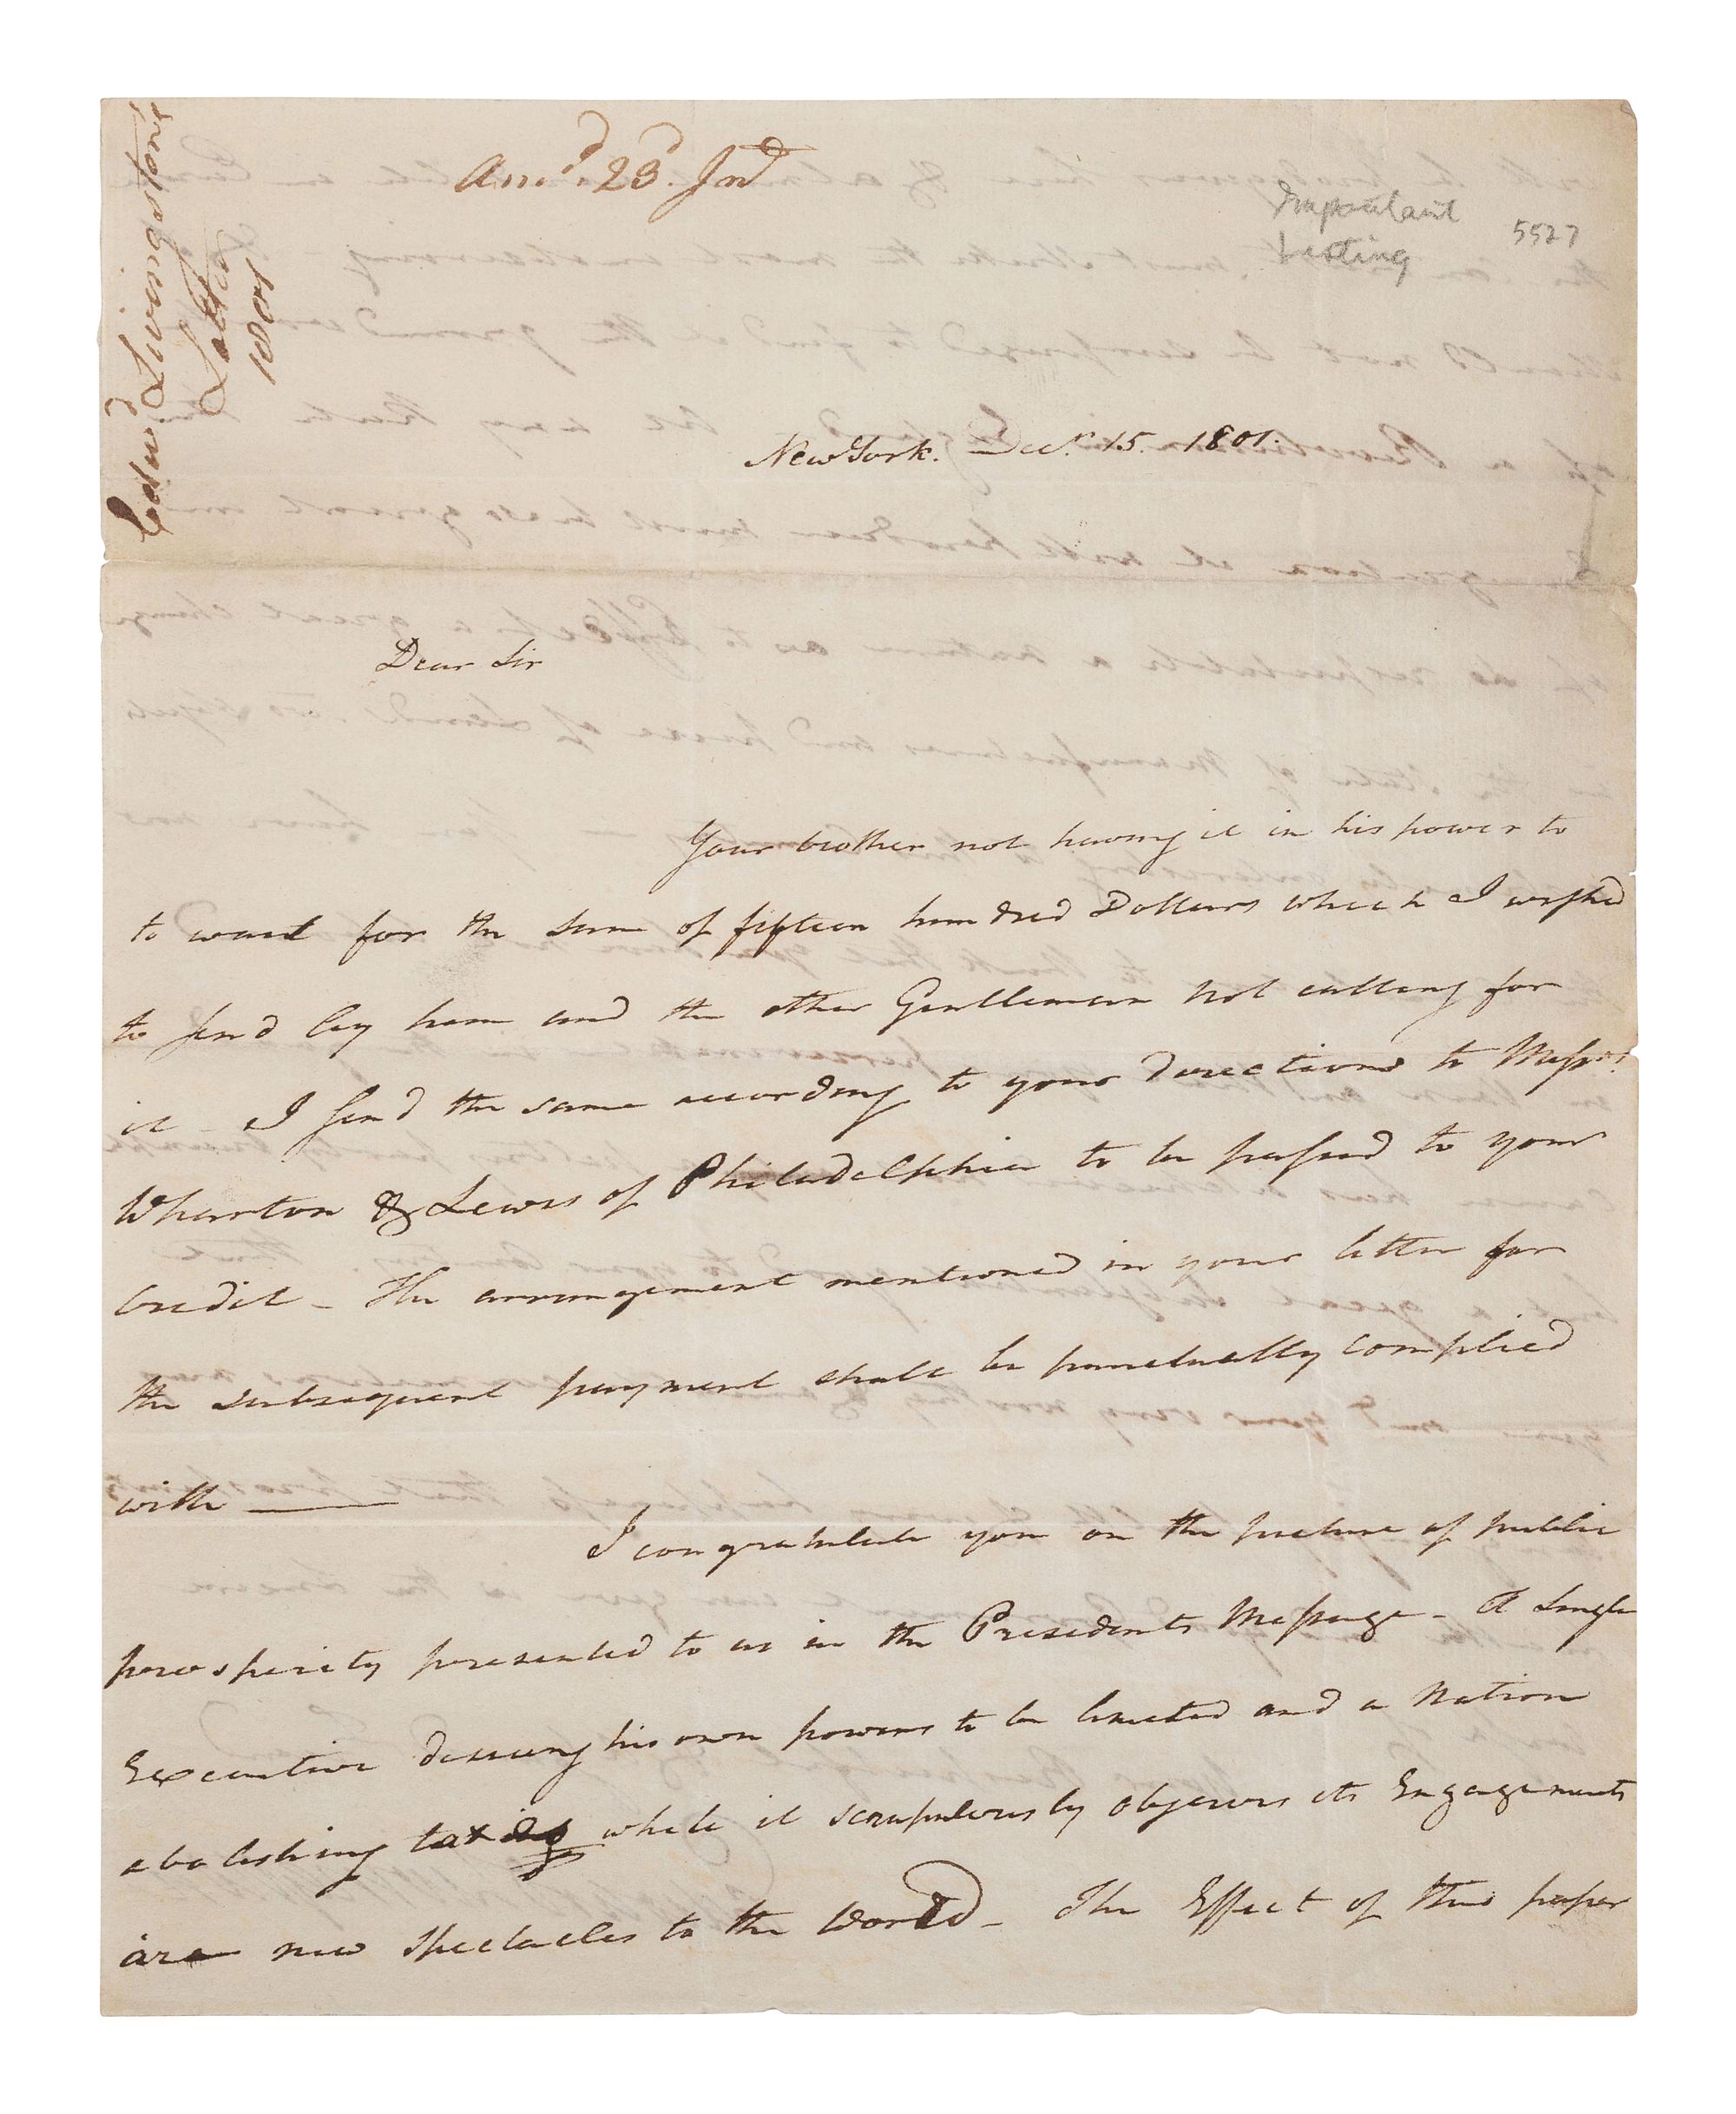 Edwd Livingston
Letter
1801
Ansd. 23d. Jnd
Important
Listing
5527
New York. Decr. 15. 1801.
Dear Sir
Your brother not having it in his power to
to wait for the sum of fifteen hundred Dollars which I wished
to send by him and the other Gentleman not calling for
it - I send the same according to your directions to Messrs.
Wharton & Lewis of Philadelphia to be passed to your
Credit - The arrangement mentioned in your letter for
the subsequent payment shall be punctually complied
with ———
I congratulate you on the picture of public
prosperity presented to us in the Presidents Message - A Single
Executive desiring his own powers to be limited and a Nation
abolishing taxing while it scrupulously observes its Engagements
are new spectacles to the World - The Effect of this paper